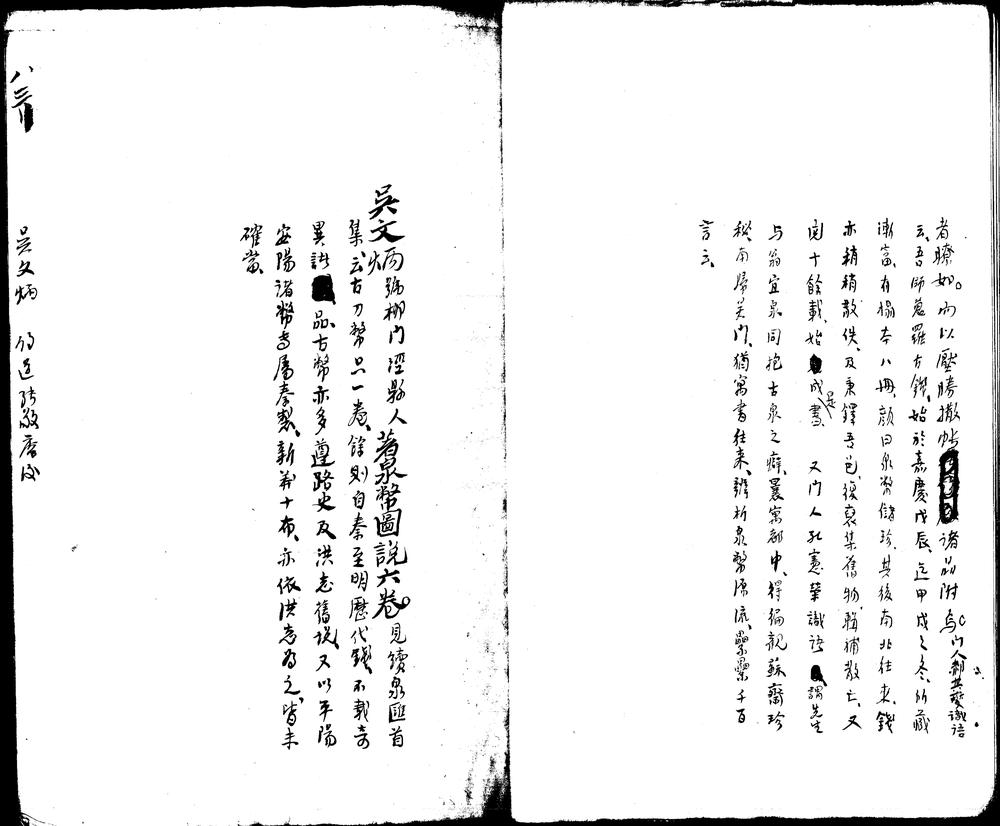 者瞭如。而以壓勝撒帳諸品附焉。門人都共夑識語
云、吾師蒐羅古錢、始於嘉慶戊辰、迄甲戌之冬、所藏
漸富、有搨本八冊、顏曰泉幣儲珍、其後南北往來、錢
亦稍稍散佚、及秉鐸吾邑、復裒集舊物、輯補散亡、又
閱十餘載、始成是書 又門人孔憲華識語謂先生
与翁宜泉同抱古泉之癖、曩寓都中、得徧觀蘇齋珍
秘、南歸美门、猶寓書往來、辨析泉幣源流、纍纍千百
言云、
吳文炳號柳门涇縣人著泉幣圖說六卷。見續泉匯首
集、云古刀幣只一卷、餘則自秦至明歷代錢、不載奇
異諸品、古幣亦多遵路史及洪志舊說、又以平陽
安陽諸幣為屬秦製、新莽十布、亦依洪志為之、皆未
確當、
吳文炳